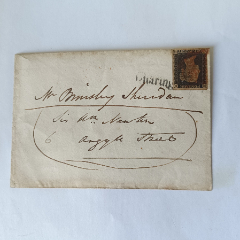 Charing
Mr Brinsley Sheridan
Sir Wm
6 Argyll Street